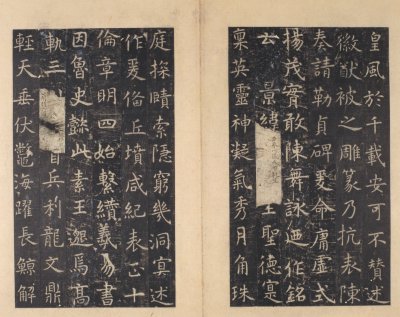 皇風於千載安可不贊述
徽猷被之雕篆乃抗表陳
奏請勒貞碑爰命庸虛式
揚茂實敢陳舞詠迺作銘
云景緯聖德寔
稟英靈神凝氣秀月角珠
庭探賾索隱窮幾洞冥述
作爰俻丘墳咸紀表正十
倫章明四始繫纘羲易書
因魯史懿此素王邈焉高
軌三首兵利龍文鼎
輕天垂伏鱉海躍長鯨解